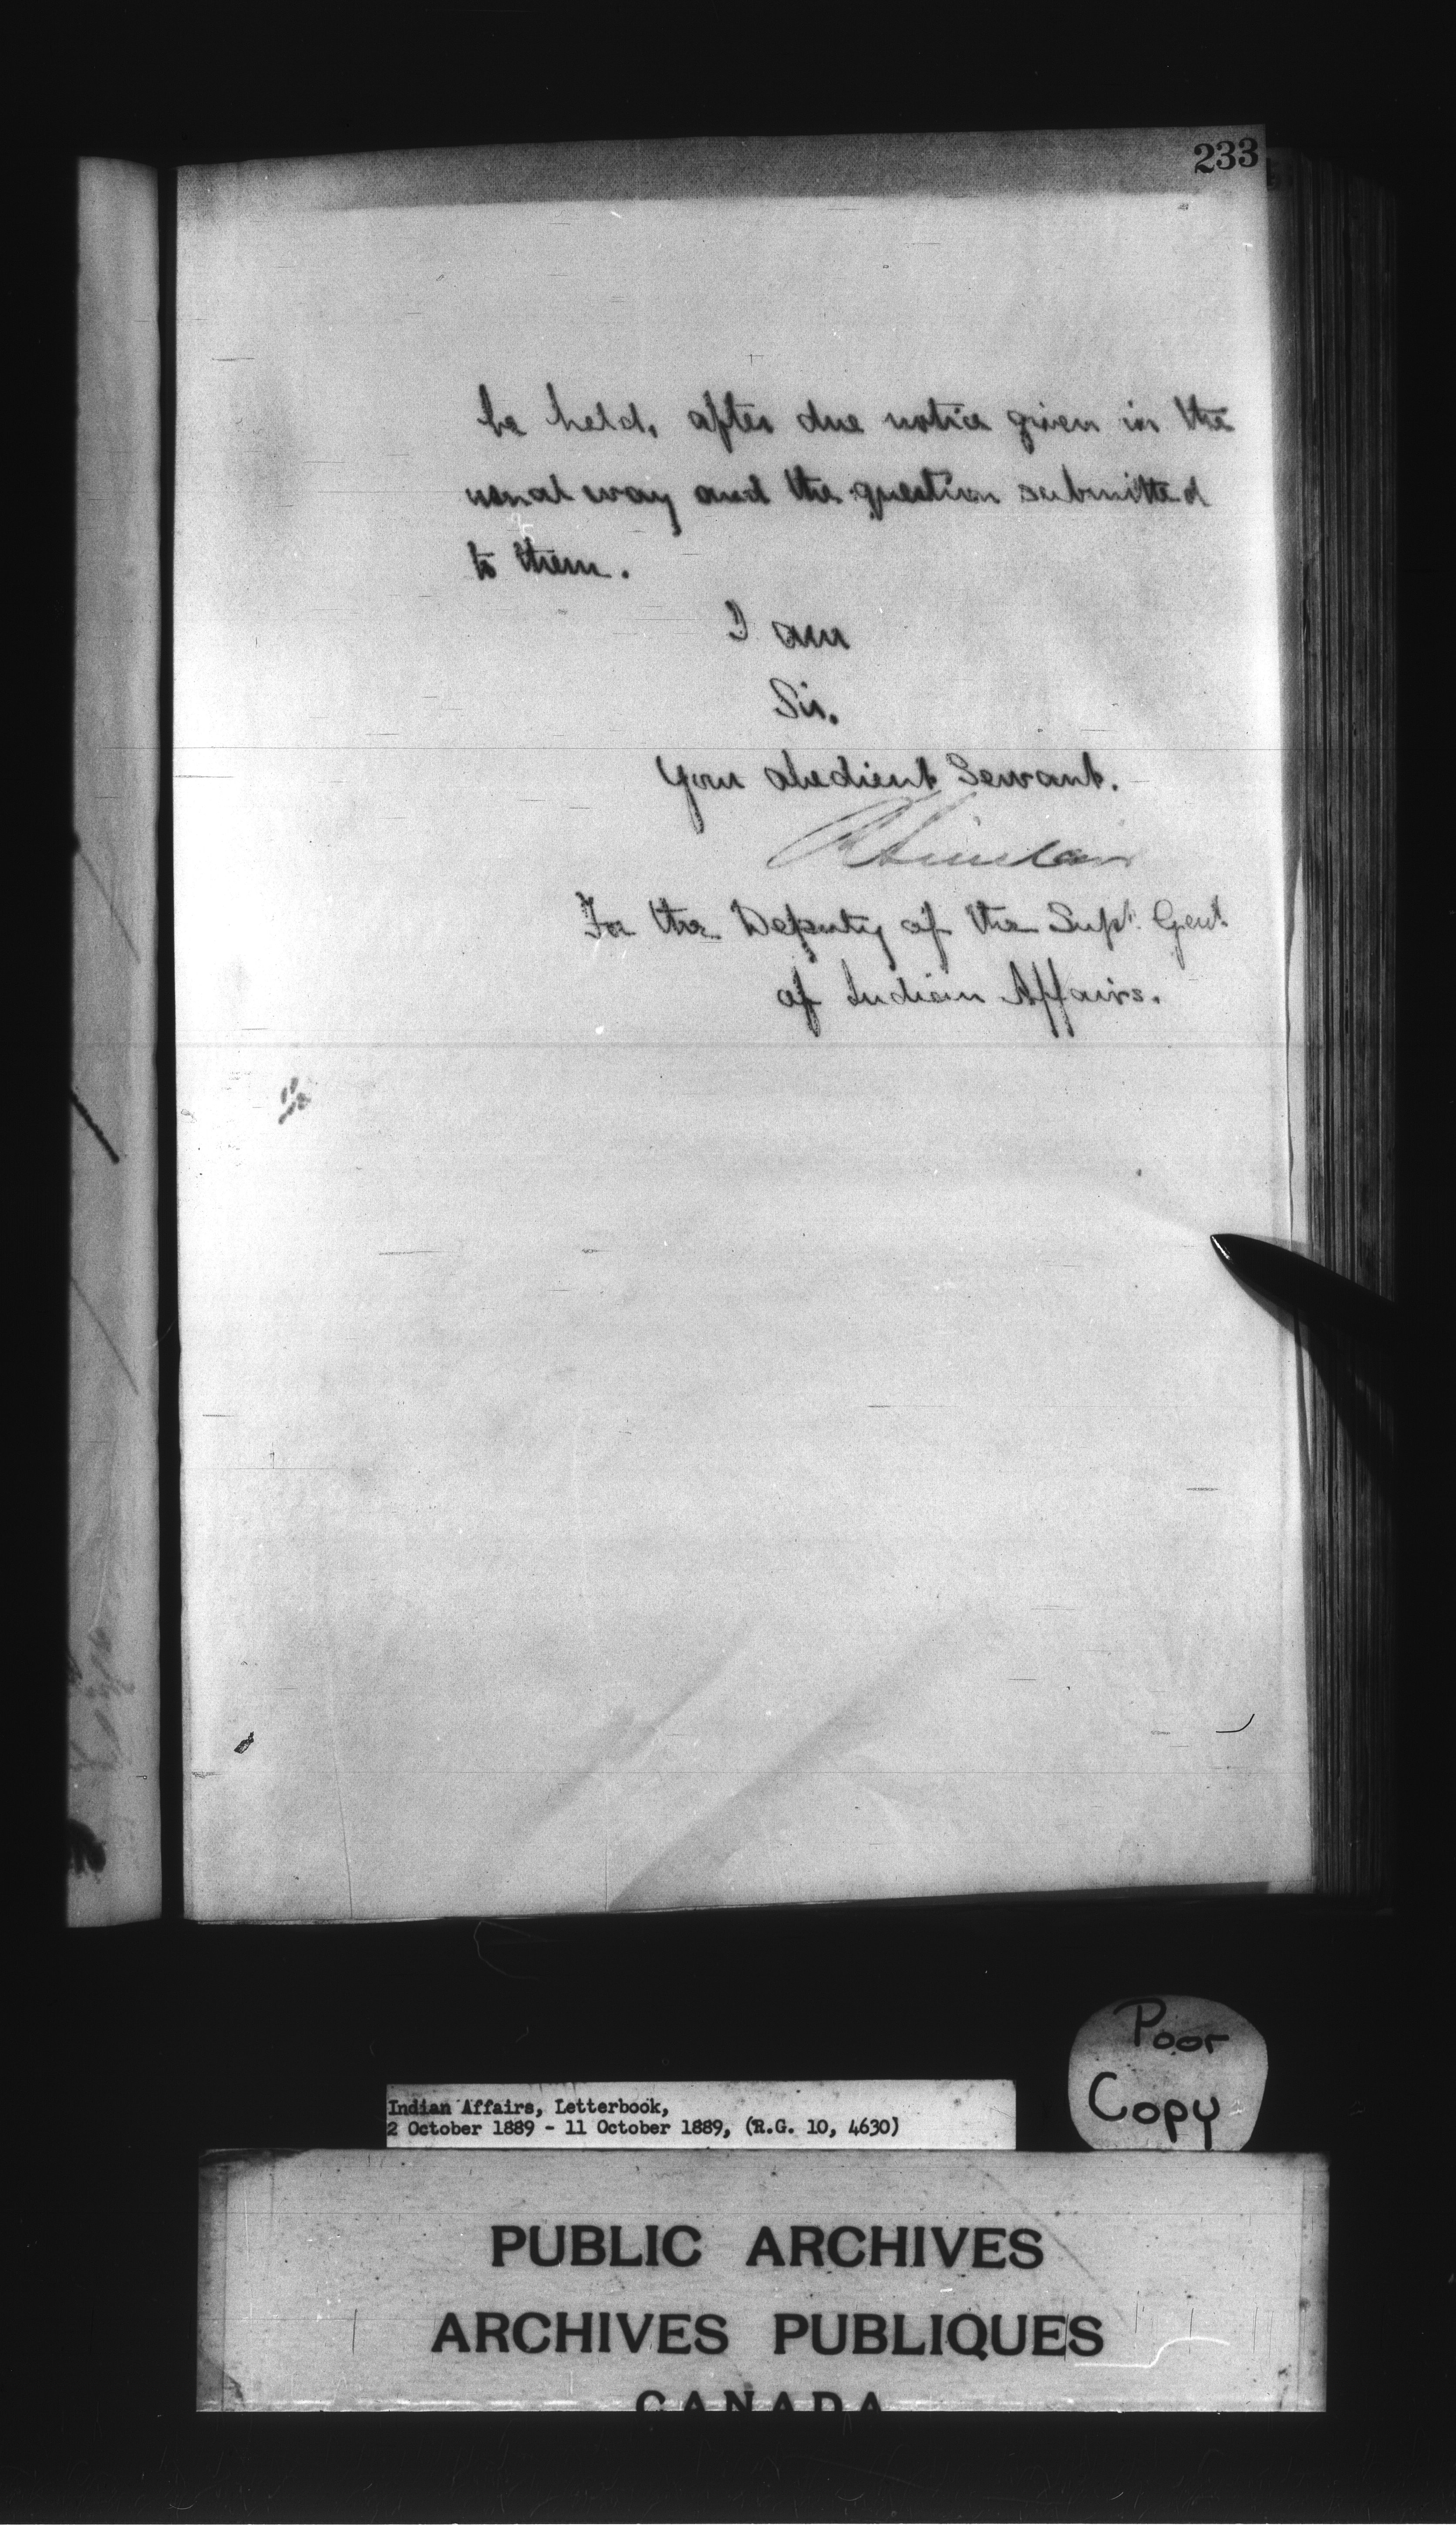 233
be held, after due notice given in the
usual way and the question submitted
to them.
I am
Sir,
Your obedient Servant.
R Sinclair
For the Deputy of the Supt. Genl.
of Indian Affairs.
Poor
Copy
Indian Affairs, Letterbook,
2 October 1889 - 11 October 1889, (R.G. 10, 4630)
PUBLIC ARCHIVES
ARCHIVES PUBLIQUES
CANADA